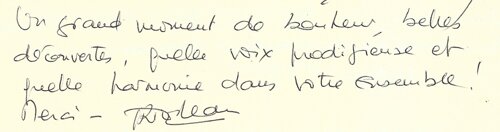 Un grand moment de bonheur, belles
découvertes, quelle voix prodigieuse et
quelle harmonie dans votre ensemble !
Merci -